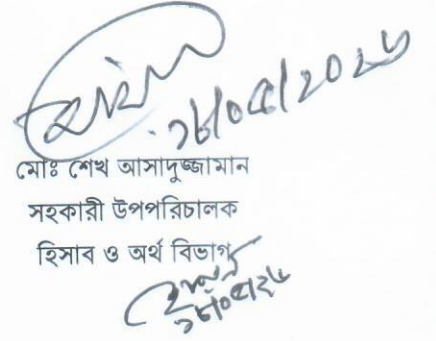 ১৮/০৫/২০২৬
মোঃ শেখ আসাদুজ্জামান
সহকারী উপপরিচালক
হিসাব ও অর্থ বিভাগ
১৮/০৫/২৬